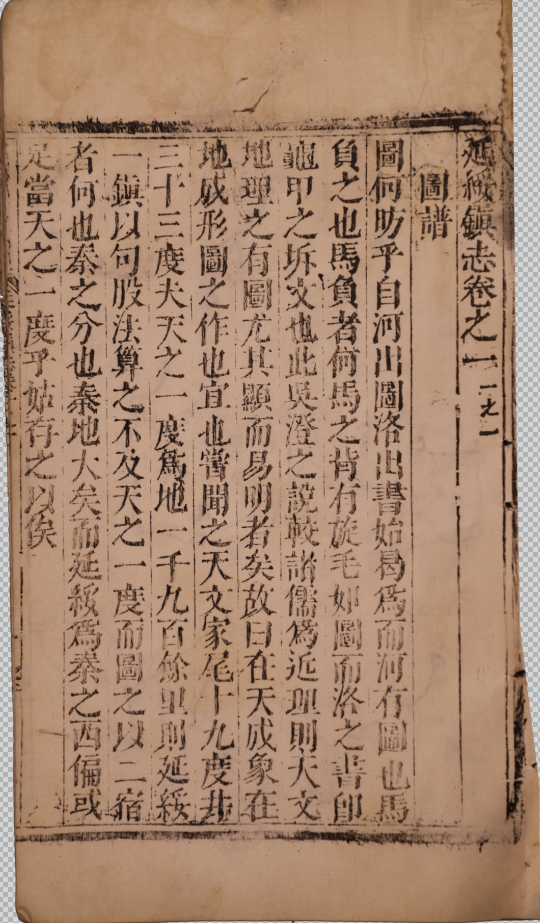 延綏鎮志卷之一 一之一
圖譜
圖何昉乎自河出圖洛出書始曷為而河有圖也馬
負之也馬負者何馬之背有旋毛如圖而洛之書卽
龜甲之坼文也此吳澄之說較諸儒為近理則天文
地理之有圖尤其顯而易明者矣故曰在天成象在
地成形圖之作也宜也嘗聞之天文家尾十九度井
三十三度大天之一度為地一千九百餘里則延綏
一鎮以句股法算之不及天之一度而圖之以二宿
者何也秦之分也秦地大矣而延綏為秦之西偏或
足當天之一度乎姑存之以俟